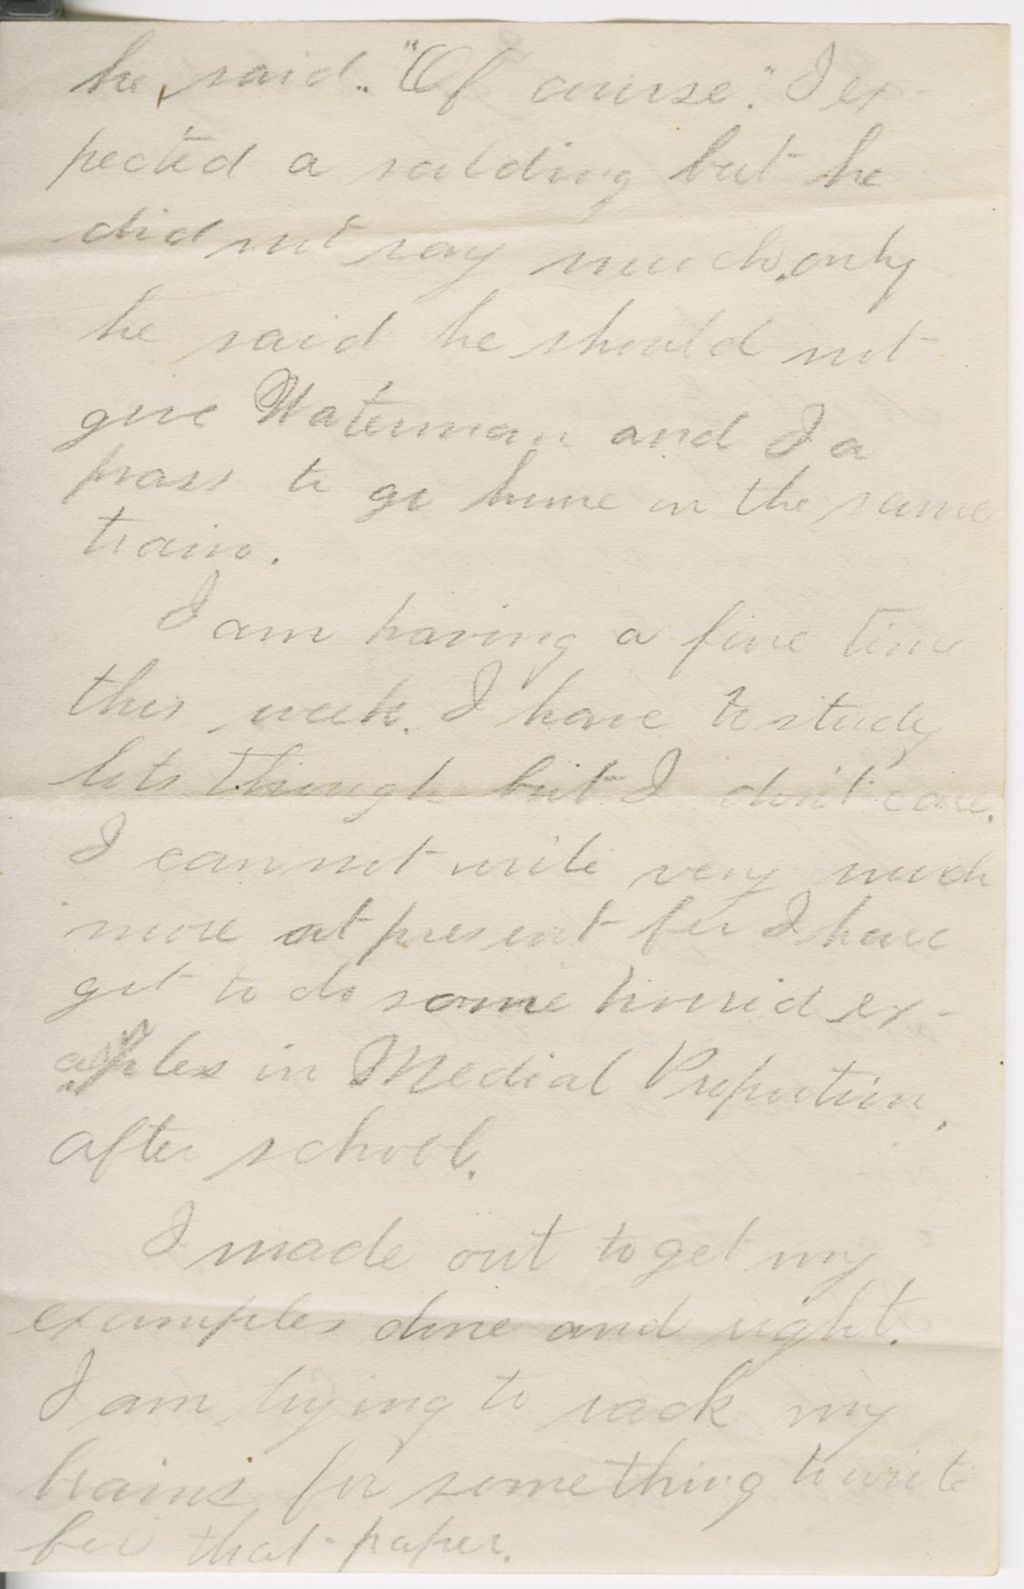 he, said. "Of course." I ex-
pected a scolding but he
did not say much, only
he said he should not
give Waterman and I a
pass to go home in the same
train.
I am having a fine time
this week. I have to study
lots though but I don't care.
I can not write very much
more at present for I have
got to do some horrid ex-
amples in Medial Proportion,
after school.
I made out to get my
examples done and right.
I am trying to rack my
brains for something to write
for that paper.